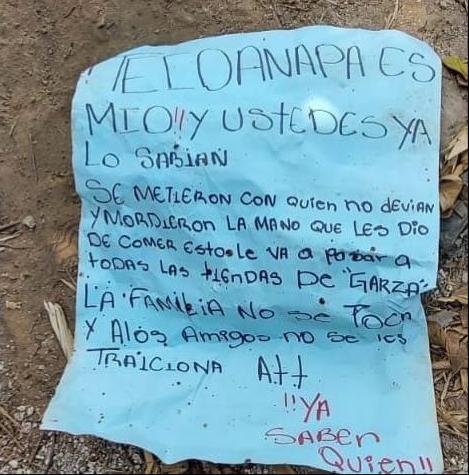 TECOANAPA ES
MIO!! Y USTEDES YA
LO SABIAN
SE METIERON CON QUIEN NO DEVIAN
Y MORDIERON LA MANO QUE LES DIO
DE COMER ESTO LE VA A PASAR A
TODAS LAS TIENDAS DE "GARZA"
LA FAMILIA NO SE TOCA
Y ALOS AMIGOS NO SE LES
TRAICIONA Att
!!YA
SABEN
QUIEN!!